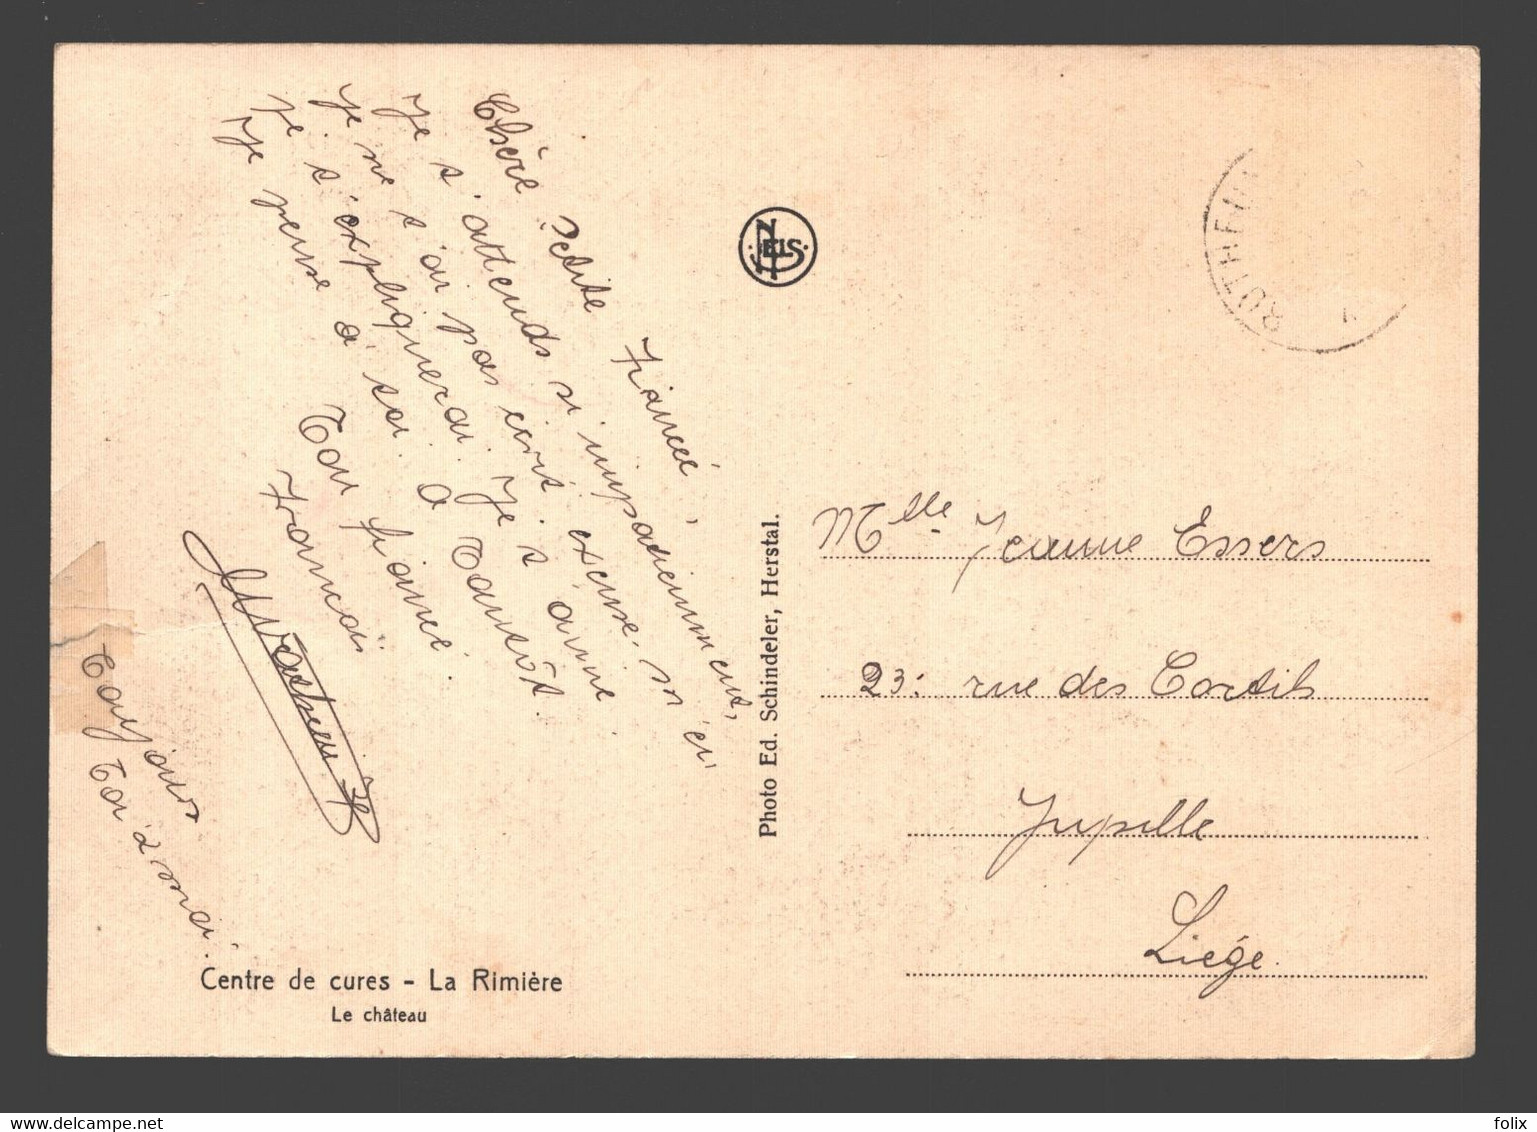 Chère Petite Fiancée,
Je t'attends si impatiemment,
je ne t'ai pas écrit excuse m'en
je t'expliquerai. Je t'aime
Je pense à toi. A Tantôt.
Ton fiancé.
François
Toujours
Toi à moi.
Centre de cures - La Rimière
Le château
NELS
Photo Ed. Schindeler, Herstal.
RUTHEIN
Mlle Jeanne Essers
23: rue des Cortils
Jupille
Liège.
www.delcampe.net
felix